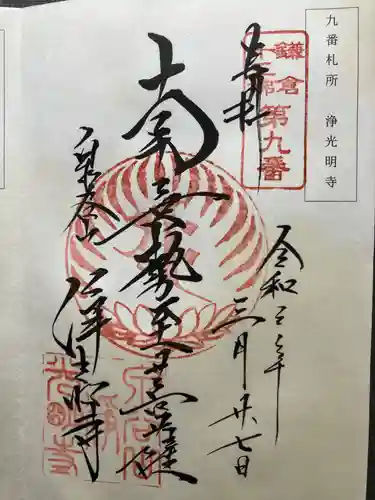 九番札所 浄光明寺
鎌倉
十三佛
第九番
奉拝
令和三年
三月廿七日
南無勢至菩薩
泉谷山
浄光明寺